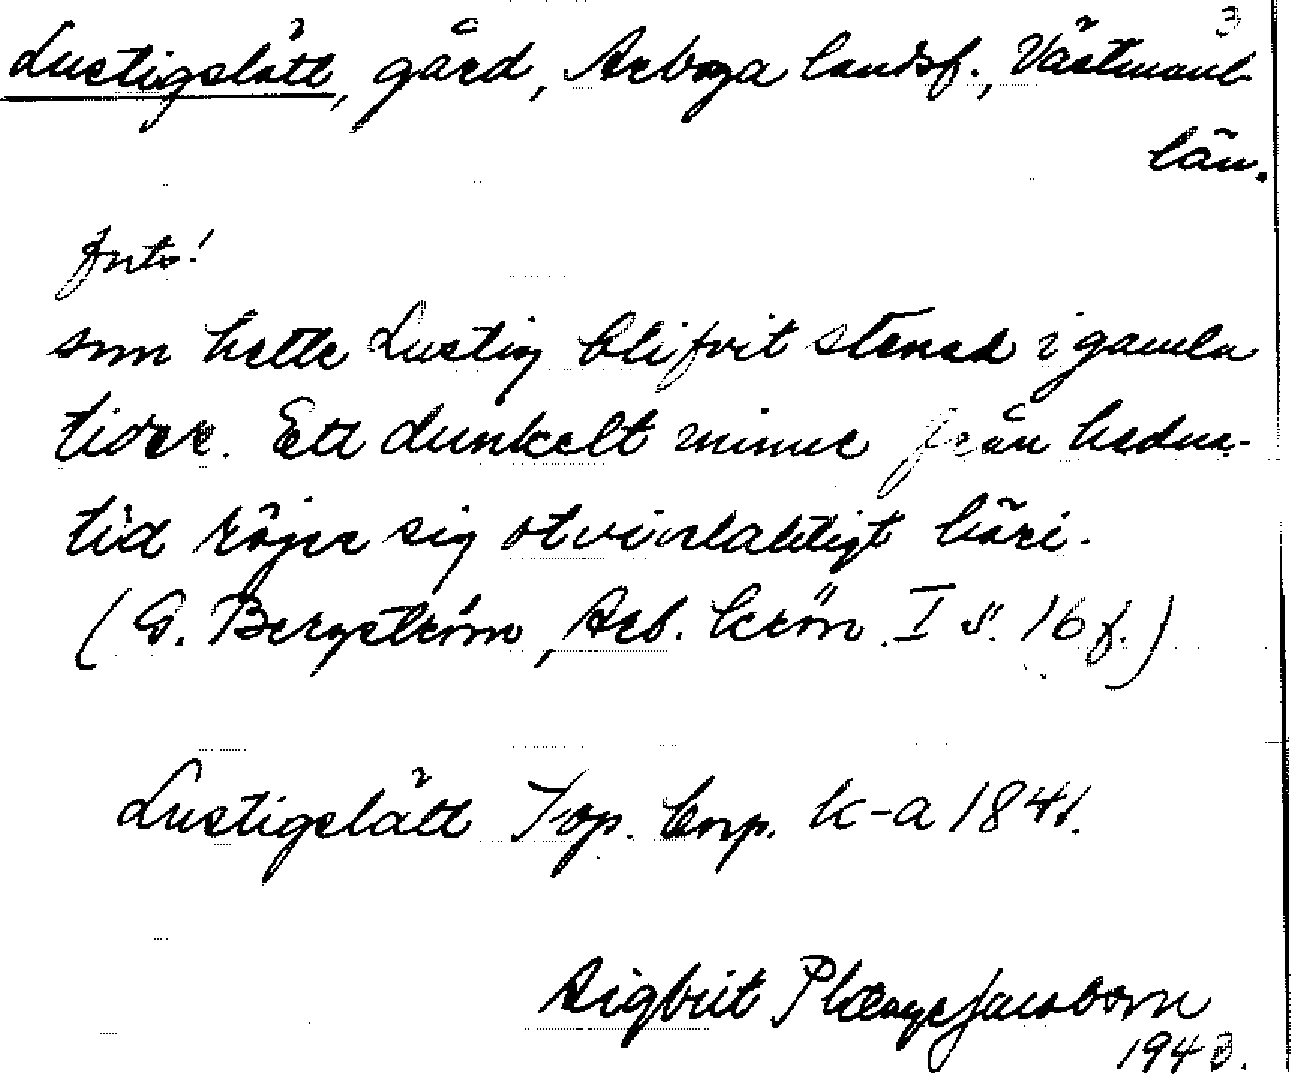 3
Lustigslätt, gård, Arboga landsf., Västmanl.
län.
forts!
som hette Lustig blifvit stenad i gamla
tider. Ett dunkelt minne från hedna-
tid röjer sig otvivelaktigt häri.
(G. Bergström, Arb. krön. I s. 16 f.)
Lustigslätt Top. Corp. k-a 1841.
Sigbrit Plænge Jacobson
1943.